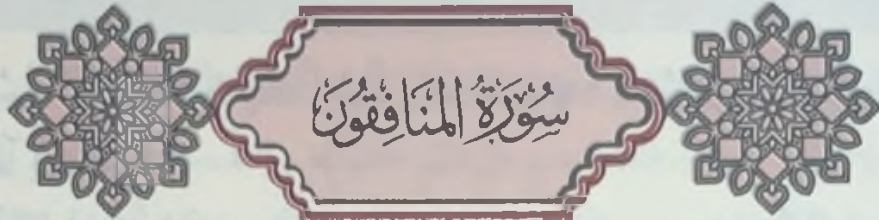 سُورَةُ المُنَافِقُونَ